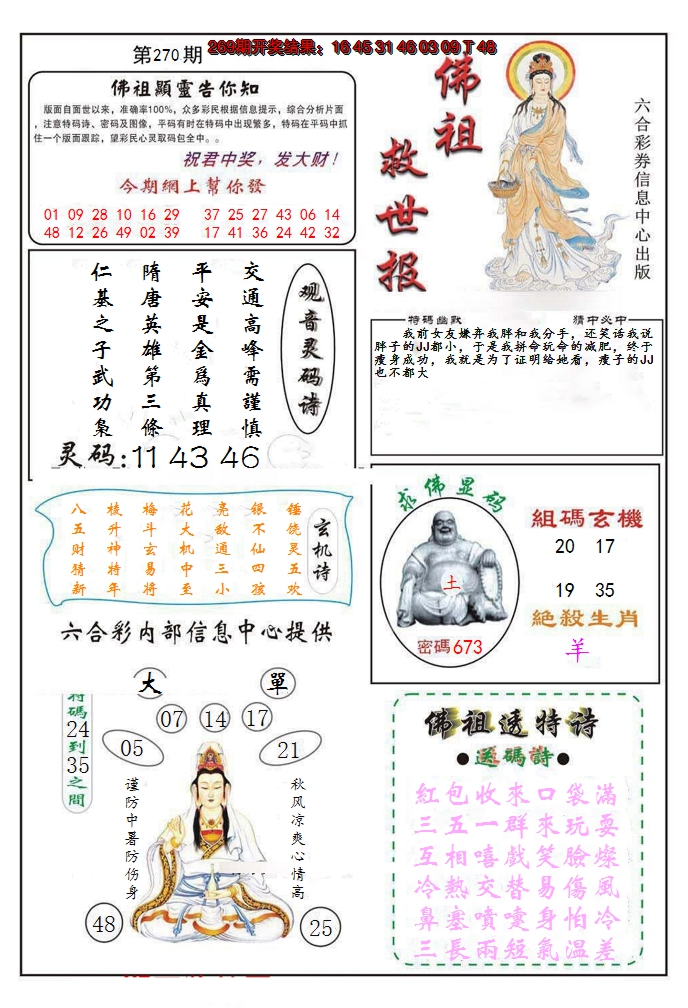 第270期
269期开奖结果：16 45 31 46 03 09 T 48
佛祖顯靈告你知
版面自面世以来，准确率100%，众多彩民根据信息提示，综合分析片面
，注意特码诗、密码及图像，平码有时在特码中出现繁多，特码在平码中抓
住一个版面跟踪，望彩民心灵取码包全中。。
祝君中奖，发大财！
今期網上幫你發
01 09 28 10 16 29 37 25 27 43 06 14
48 12 26 49 02 39 17 41 36 24 42 32
佛祖
救世报
六合彩券信息中心出版
观音灵码诗
交通高峰需謹慎
平安是金爲真理
隋唐英雄第三條
仁基之子武功枭
灵码:11 43 46
特碼幽默
猜中必中
我前女友嫌弃我胖和我分手，还笑话我说
胖子的JJ都小，于是我拼命玩命的减肥，终于
瘦身成功，我就是为了证明给她看，瘦子的JJ
也不都大
玄机诗
八棱梅花亮银锤
五升斗大敌不饶
财神玄机通仙灵
猜特易中三四五
新年将至小孩欢
六合彩内部信息中心提供
求佛显码
土
密碼673
組碼玄機
20 17
19 35
絶殺生肖
羊
大
單
特碼24到35之間
07
14
17
05
21
谨防中暑防伤身
秋风凉爽心情高
48
25
佛祖透特诗
●送碼詩●
紅包收來口袋滿
三五一群來玩耍
互相嘻戲笑臉燦
冷熱交替易傷風
鼻塞噴嚏身怕冷
三長兩短氣温差